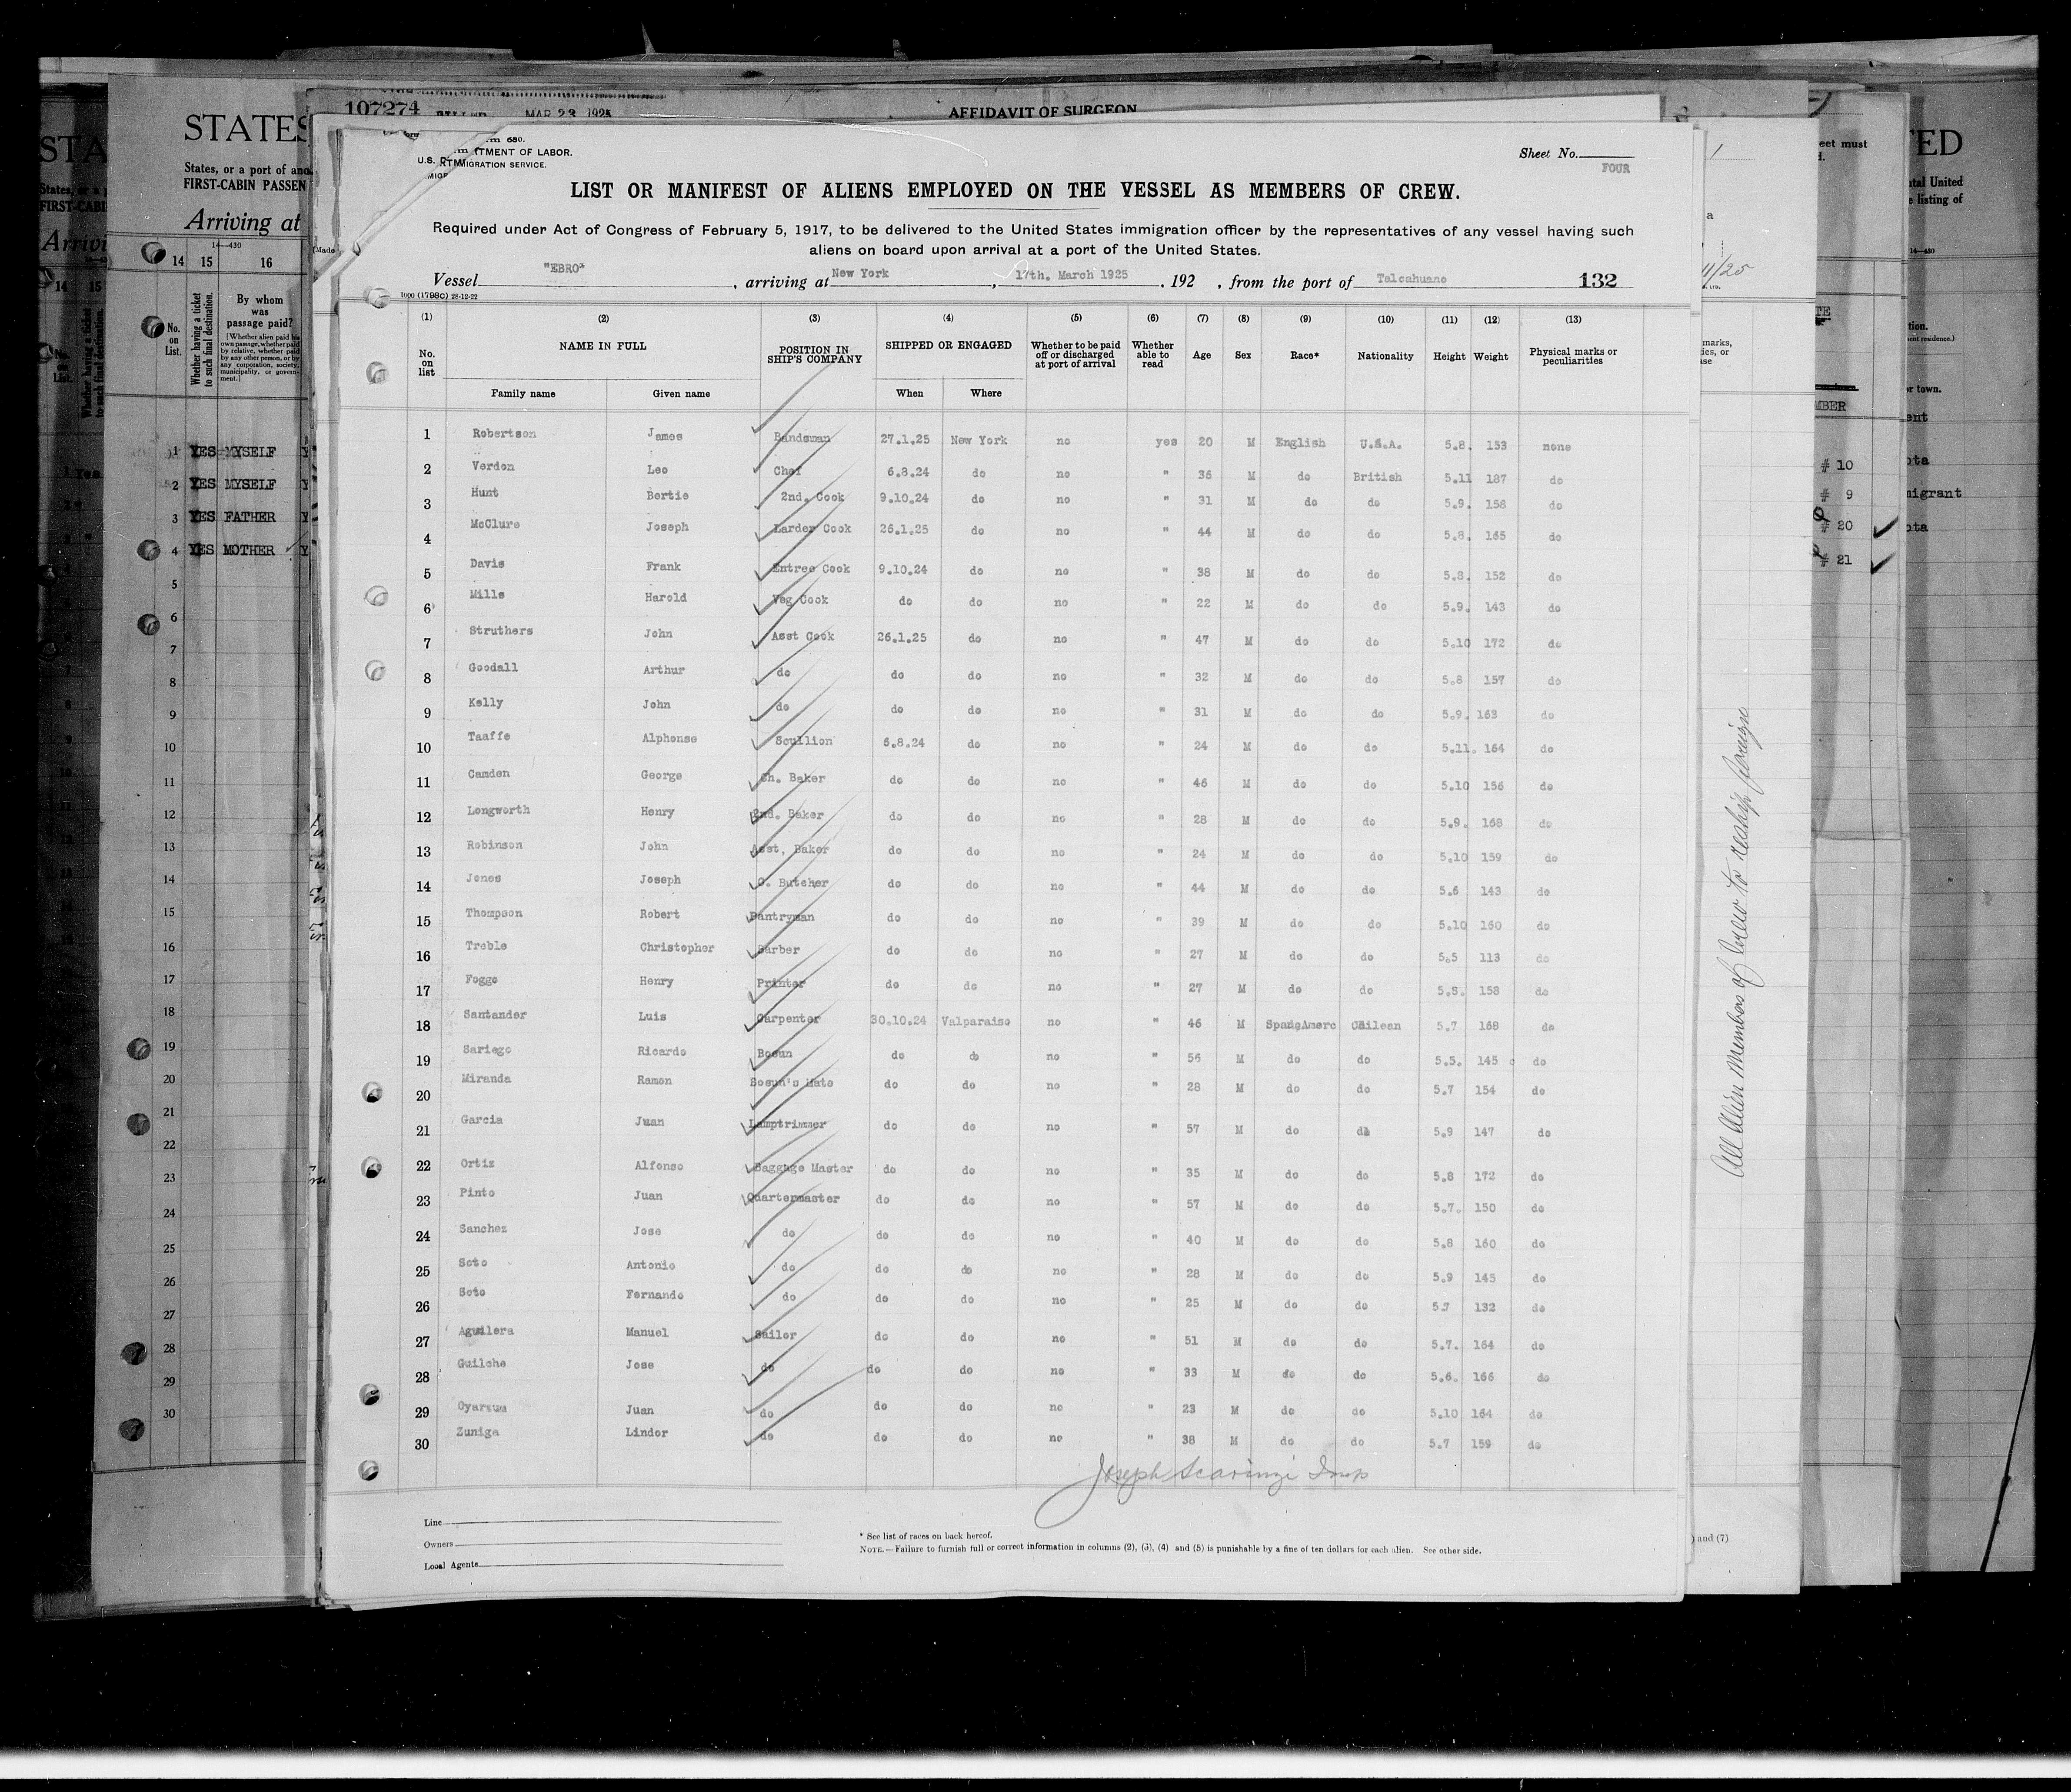 107274 FILLED MAR 23 1925 AFFIDAVIT OF SURGEON
U.S. DEPARTMENT OF LABOR.
IMMIGRATION SERVICE.
Sheet No. FOUR
LIST OR MANIFEST OF ALIENS EMPLOYED ON THE VESSEL AS MEMBERS OF CREW.
Required under Act of Congress of February 5, 1917, to be delivered to the United States immigration officer by the representatives of any vessel having such
aliens on board upon arrival at a port of the United States.
Vessel "EBRO", arriving at New York, 17th. March 1925, 192 , from the port of Talcahuano 132
1000 (1798C) 28-12-22
(1) (2) (3) (4) (5) (6) (7) (8) (9) (10) (11) (12) (13)
No. on list NAME IN FULL POSITION IN SHIP'S COMPANY SHIPPED OR ENGAGED Whether to be paid off or discharged at port of arrival Whether able to read Age Sex Race* Nationality Height Weight Physical marks or peculiarities
Family name Given name When Where
1 Robertson James Bandsman 27.1.25 New York no yes 20 M English U.S.A. 5.8. 153 none
2 Verdon Leo Chef 6.8.24 do no " 36 M do British 5.11 187 do
3 Hunt Bertie 2nd. Cook 9.10.24 do no " 31 M do do 5.9. 158 do
4 McClure Joseph Larder Cook 26.1.25 do no " 44 M do do 5.8. 165 do
5 Davis Frank Entree Cook 9.10.24 do no " 38 M do do 5.8. 152 do
6 Mills Harold Veg Cook do do no " 22 M do do 5.9. 143 do
7 Struthers John Asst Cook 26.1.25 do no " 47 M do do 5.10 172 do
8 Goodall Arthur do do do no " 32 M do do 5.8 157 do
9 Kelly John do do do no " 31 M do do 5.9. 163 do
10 Taaffe Alphonse Scullion 6.8.24 do no " 24 M do do 5.11. 164 do
11 Camden George Ch. Baker do do no " 46 M do do 5.10 156 do
12 Longworth Henry 2nd. Baker do do no " 28 M do do 5.9. 168 do
13 Robinson John Asst. Baker do do no " 24 M do do 5.10 159 do
14 Jones Joseph C. Butcher do do no " 44 M do do 5.6 143 do
15 Thompson Robert Pantryman do do no " 39 M do do 5.10 160 do
16 Treble Christopher Barber do do no " 27 M do do 5.5 113 do
17 Foggo Henry Printer do do no " 27 M do do 5.8. 158 do
18 Santander Luis Carpenter 30.10.24 Valparaiso no " 46 M SpansAmerc Chilean 5.7 168 do
19 Sariego Ricardo Bosun do do no " 56 M do do 5.5. 145 do
20 Miranda Ramon Bosun's Mate do do no " 28 M do do 5.7 154 do
21 Garcia Juan Lamptrimmer do do no " 57 M do do 5.9 147 do
22 Ortiz Alfonso Baggage Master do do no " 35 M do do 5.8 172 do
23 Pinto Juan Quartermaster do do no " 57 M do do 5.7. 150 do
24 Sanchez Jose do do do no " 40 M do do 5.8 160 do
25 Soto Antonio do do do no " 28 M do do 5.9 145 do
26 Soto Fernando do do do no " 25 M do do 5.7 132 do
27 Aguilera Manuel Sailor do do no " 51 M do do 5.7. 164 do
28 Guilche Jose do do do no " 33 M do do 5.6. 166 do
29 Oyarzum Juan do do do no " 23 M do do 5.10 164 do
30 Zuniga Lindor do do do no " 38 M do do 5.7 159 do
Joseph Scaringi Insp
Line
Owners
Local Agents
* See list of races on back hereof.
NOTE.—Failure to furnish full or correct information in columns (2), (3), (4) and (5) is punishable by a fine of ten dollars for each alien. See other side.
STATES
States, or a port of
FIRST-CABIN PASSEN
Arriving at
14—430
14 15 16
No. on List.
Whether having a ticket to such final destination.
By whom was passage paid?
[Whether alien paid his own passage, whether paid by relative, whether paid by any other person, or by any corporation, society, municipality, or government.]
1 YES MYSELF
2 YES MYSELF
3 YES FATHER
4 YES MOTHER
5
6
7
8
9
10
11
12
13
14
15
16
17
18
19
20
21
22
23
24
25
26
27
28
29
30
All Alien members of crew to reship foreign
# 10
# 9
# 20
# 21
) and (7)